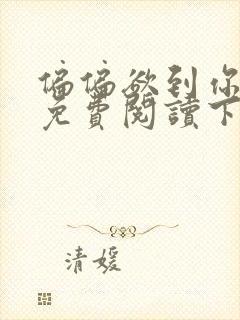 偏偏欲到你
免費閱讀下
清媛